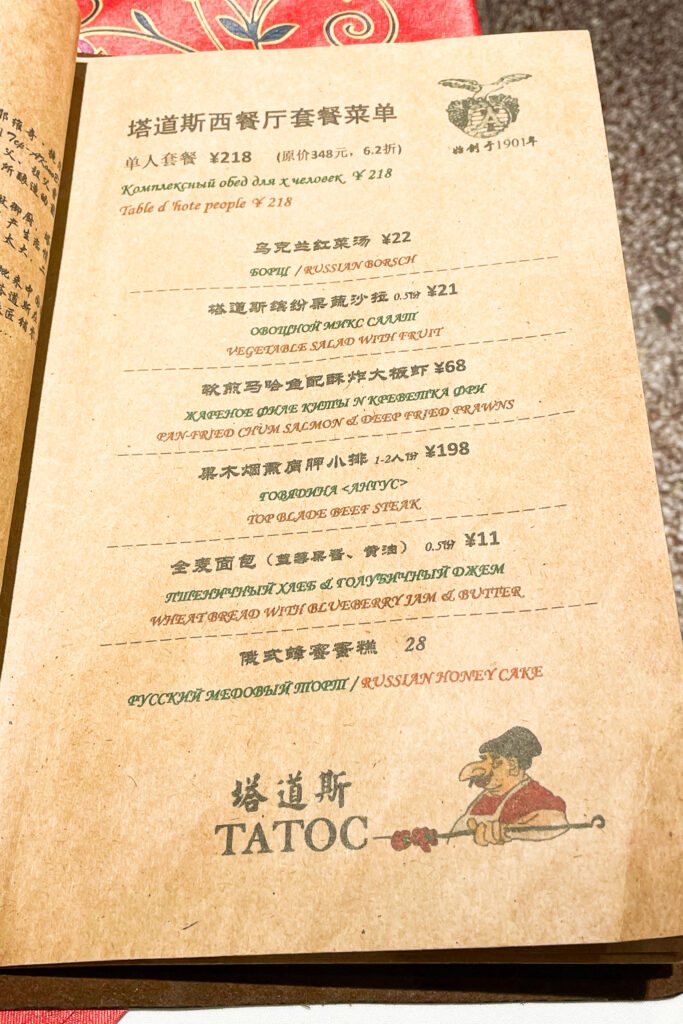 塔道斯西餐厅套餐菜单
始创于1901年
单人套餐 ¥218 (原价348元，6.2折)
Комплексный обед для х человек ¥ 218
Table d 'hote people ¥ 218
乌克兰红菜汤 ¥22
БОРЩ / RUSSIAN BORSCH
塔道斯缤纷果蔬沙拉 0.5份 ¥21
ОВОЩНОЙ МИКС САЛАТ
VEGETABLE SALAD WITH FRUIT
软煎马哈鱼配酥炸大板虾 ¥68
ЖАРЕНОЕ ФИЛЕ КИТЫ N КРЕВЕТКА ФРИ
PAN-FRIED CHUM SALMON & DEEP FRIED PRAWNS
果木烟熏肩胛小排 1-2人份 ¥198
ГОВЯДИНА <АНГУС>
TOP BLADE BEEF STEAK
全麦面包（蓝莓果酱、黄油） 0.5份 ¥11
ПШЕНИЧНЫЙ ХЛЕБ & ГОЛУБИЧНЫЙ ДЖЕМ
WHEAT BREAD WITH BLUEBERRY JAM & BUTTER
俄式蜂蜜蛋糕 28
РУССКИЙ МЕДОВЫЙ ТОРТ / RUSSIAN HONEY CAKE
塔道斯
TATOC